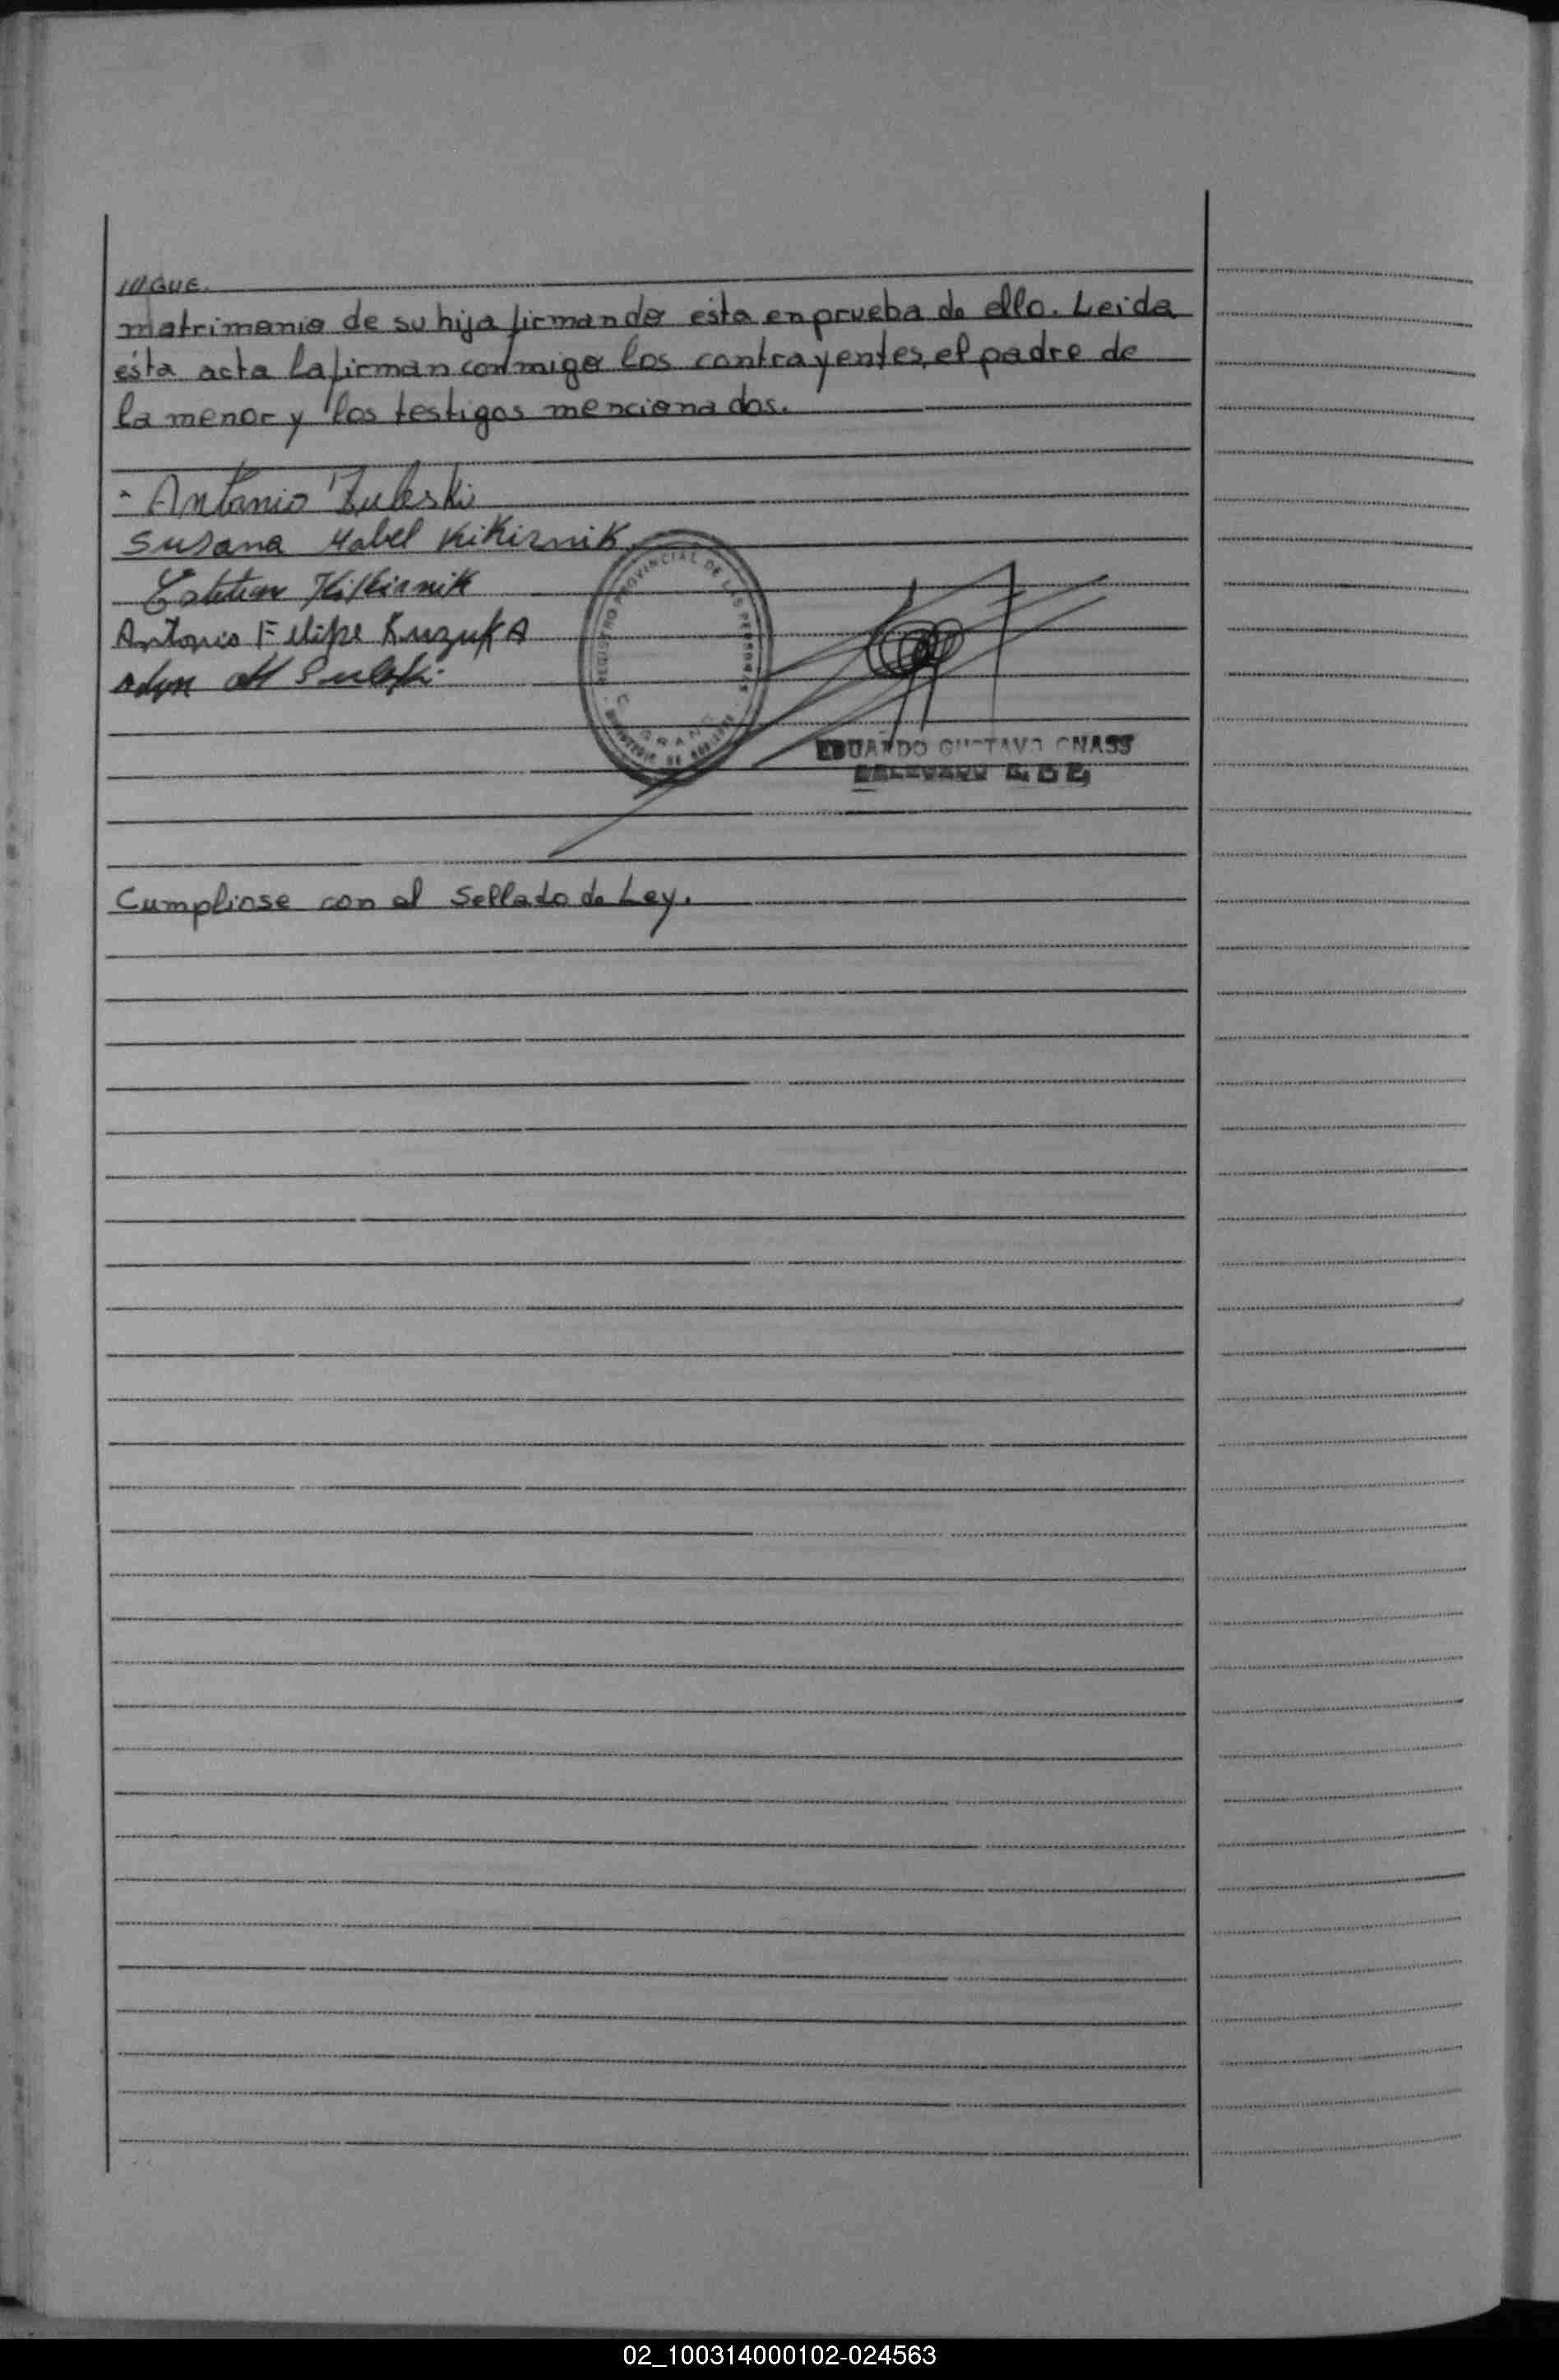 matrimonio de su hija firmando esta en prueba de ello. Leida
ésta acta la firman conmigo los contrayentes, el padre de
la menor y los testigos mencionados.
Antonio Zuleski
Susana Mabel Kikiznik
Kikiznik
Antonio Felipe Kuzuka
REGISTRO PROVINCIAL DE LAS PERSONAS
EDUARDO GUSTAVO GNASS
Cumpliose con el Sellado de Ley.
02_100314000102-024563